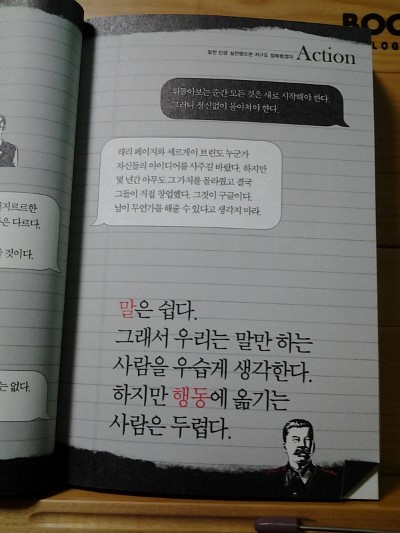 BOO
LOG
말한 만큼 실천했으면 지구도 정복했겠다 Action
뒤돌아보는 순간 모든 것은 새로 시작해야 한다.
그러니 정신없이 몰아쳐야 한다.
래리 페이지와 세르게이 브린도 누군가
자신들의 아이디어를 사주길 바랐다. 하지만
몇 년간 아무도 그 가치를 몰라줬고 결국
그들이 직접 창업했다. 그것이 구글이다.
남이 무언가를 해줄 수 있다고 생각지 마라.
지르르한
은 다르다.
것이다.
는 없다.
말은 쉽다.
그래서 우리는 말만 하는
사람을 우습게 생각한다.
하지만 행동에 옮기는
사람은 두렵다.